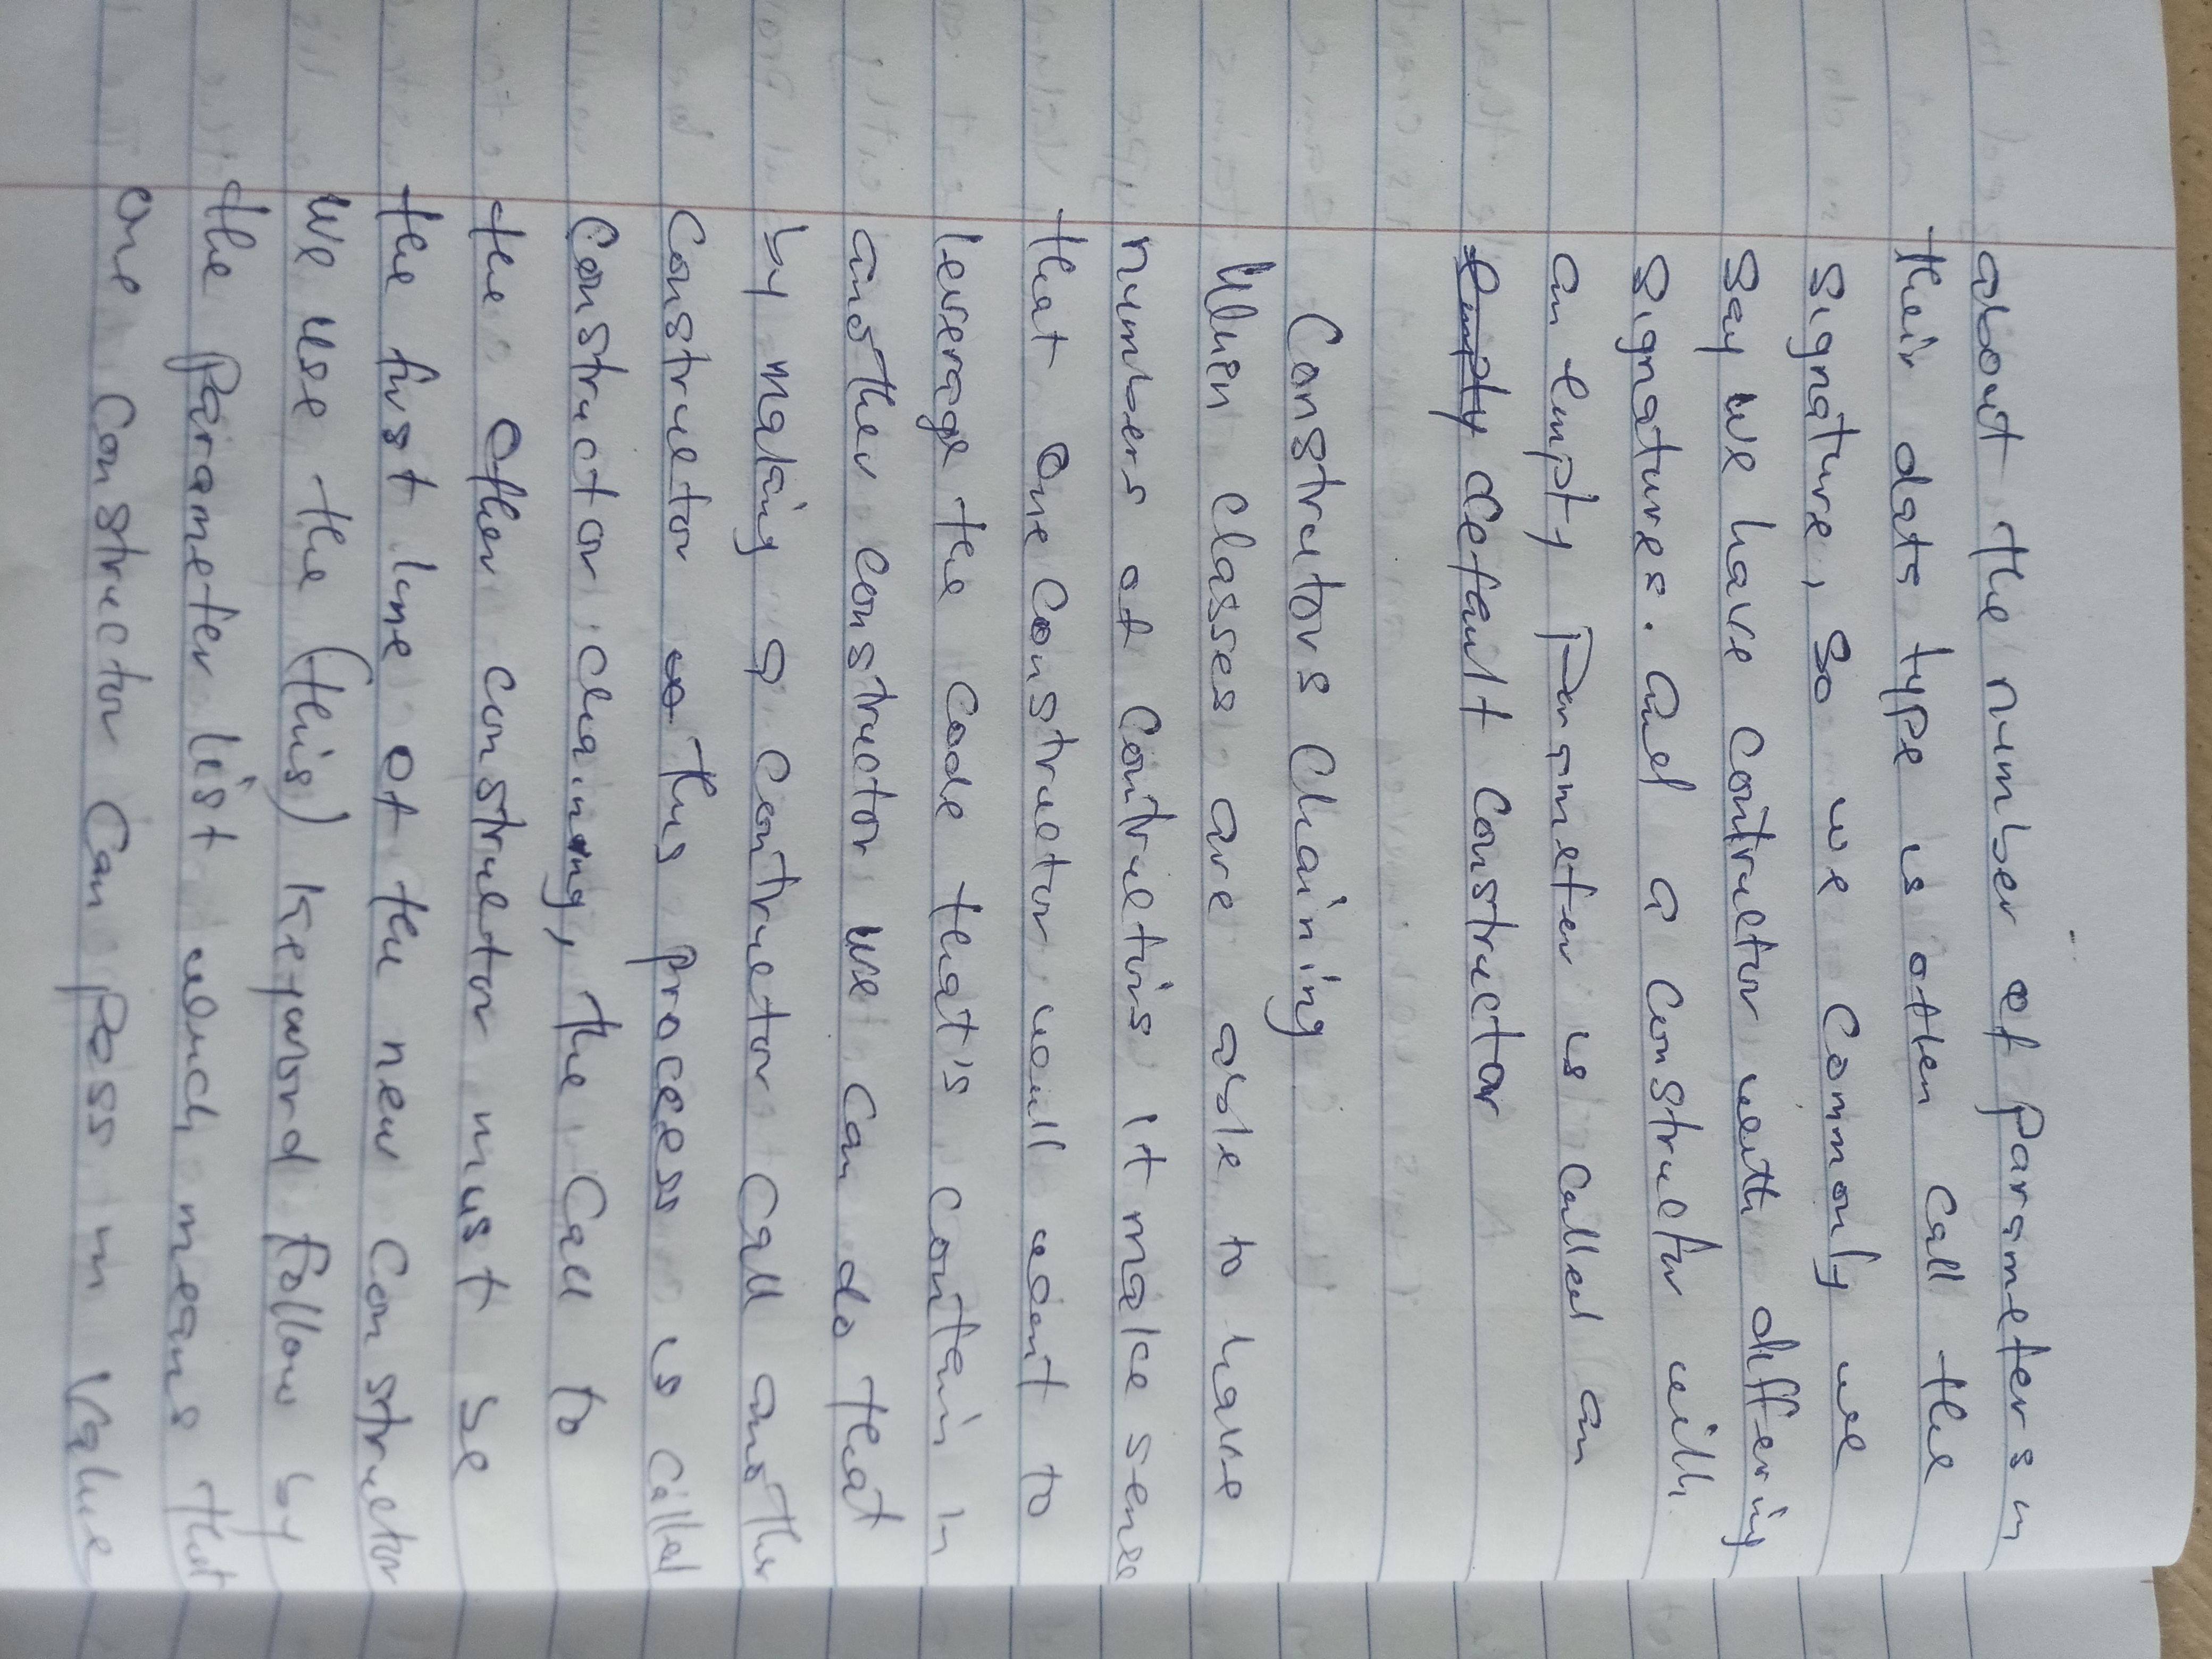 about the number of parameters in
their data type is often call the
signature, so we commonly we
say we have contructor with differing
signatures. and a constructor with
an empty parameter is called an
empty default constructor
Constructors Chaining
When classes are able to have
numbers of contructors it make sense
that one constructor will want to
leverage the code that's contain in
another constructor we can do that
by making a contructor call another
constructor this process is called
constructor chaining, the call to
the other constructor must be
the first line of the new constructor
we use the (this) keyword follow by
the parameter list which means that
one constructor can pass in value